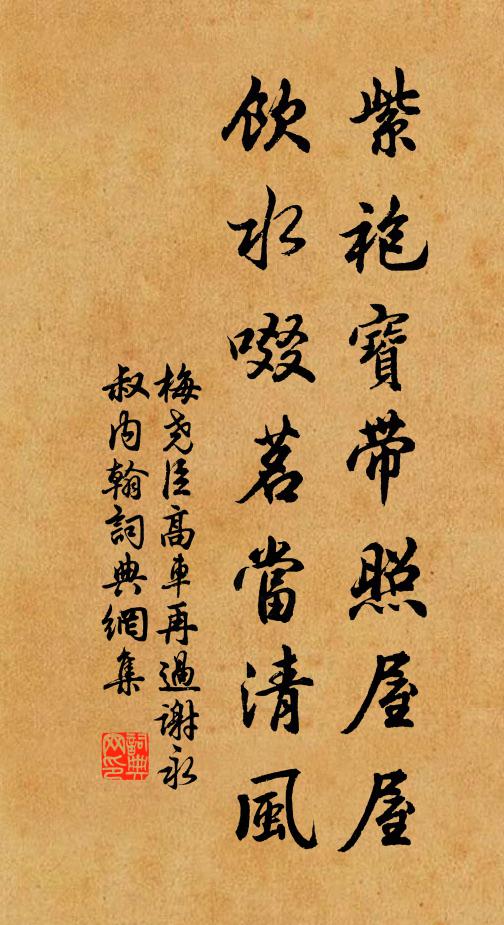 紫袍寶帶照屋屋
飲水啜茗當清風
梅尧臣高車再過謝永
叔内翰詞典網集
詞典
网印